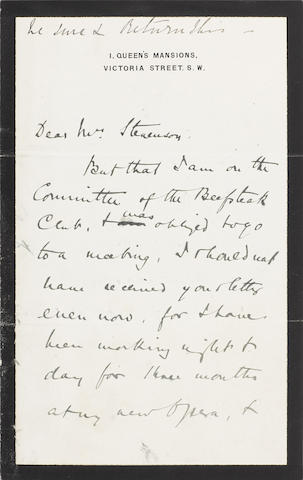 be sure & Return this –
1, QUEEN'S MANSIONS,
VICTORIA STREET. S. W.
Dear Mrs Stevenson
But that I am on the
Committee of the Beefsteak
Club, & was obliged to go
to a meeting, I should not
have received your letter
even now, for I have
been working night &
day for three months
at my new Opera, &